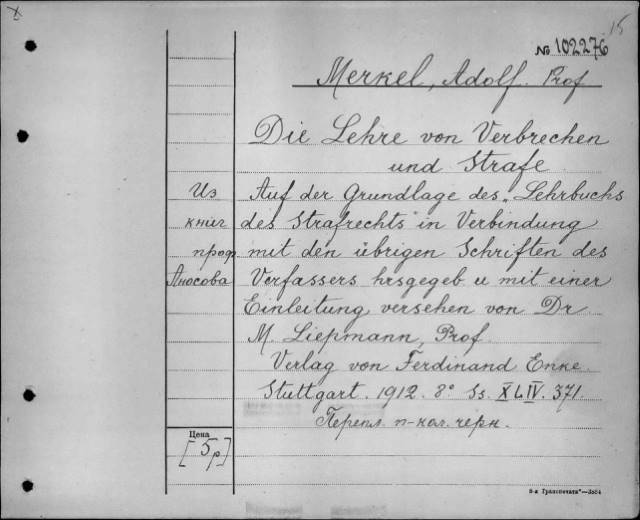 X
15
№ 102276
Merkel, Adolf. Prof
Die Lehre von Verbrechen
und Strafe
Auf der Grundlage des „Lehrbuchs
des Strafrechts" in Verbindung
mit den übrigen Schriften des
Verfassers hrsgegeb u mit einer
Einleitung versehen von Dr
M. Liepmann, Prof.
Verlag von Ferdinand Enke.
Stuttgart. 1912. 8° Ss. XLIV. 371.
Перепл. п-кол. черн.
Из
книг
проф
Аносова
Цена
[5р]
5-я „Транспечати"—3554